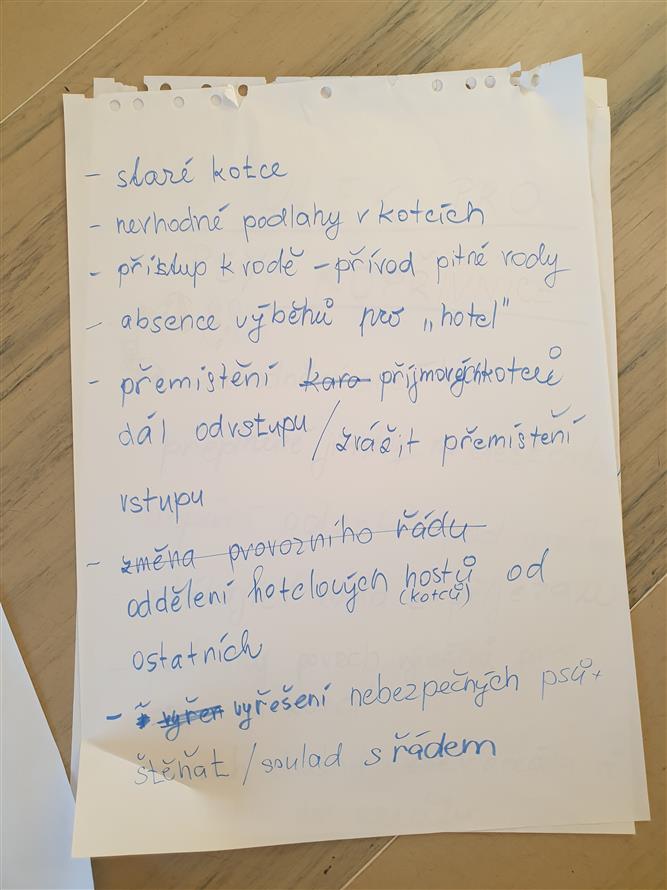 - staré kotce
- nevhodné podlahy v kotcích
- přístup k vodě - přívod pitné vody
- absence výběhů pro „hotel"
- přemistění karo příjmových kotců
dál od vstupu / zvážit přemistění
vstupu
- změna provozního řádu
oddělení hotelových hostů od
(kotců)
ostatních
- vyřeš vyřešení nebezpečných psů +
štěňat / soulad s řádem